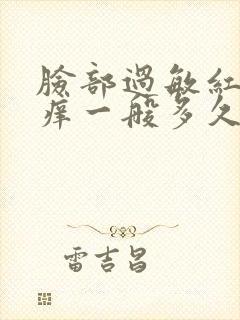 臉部過敏紅
痒一般多久
雷吉昌